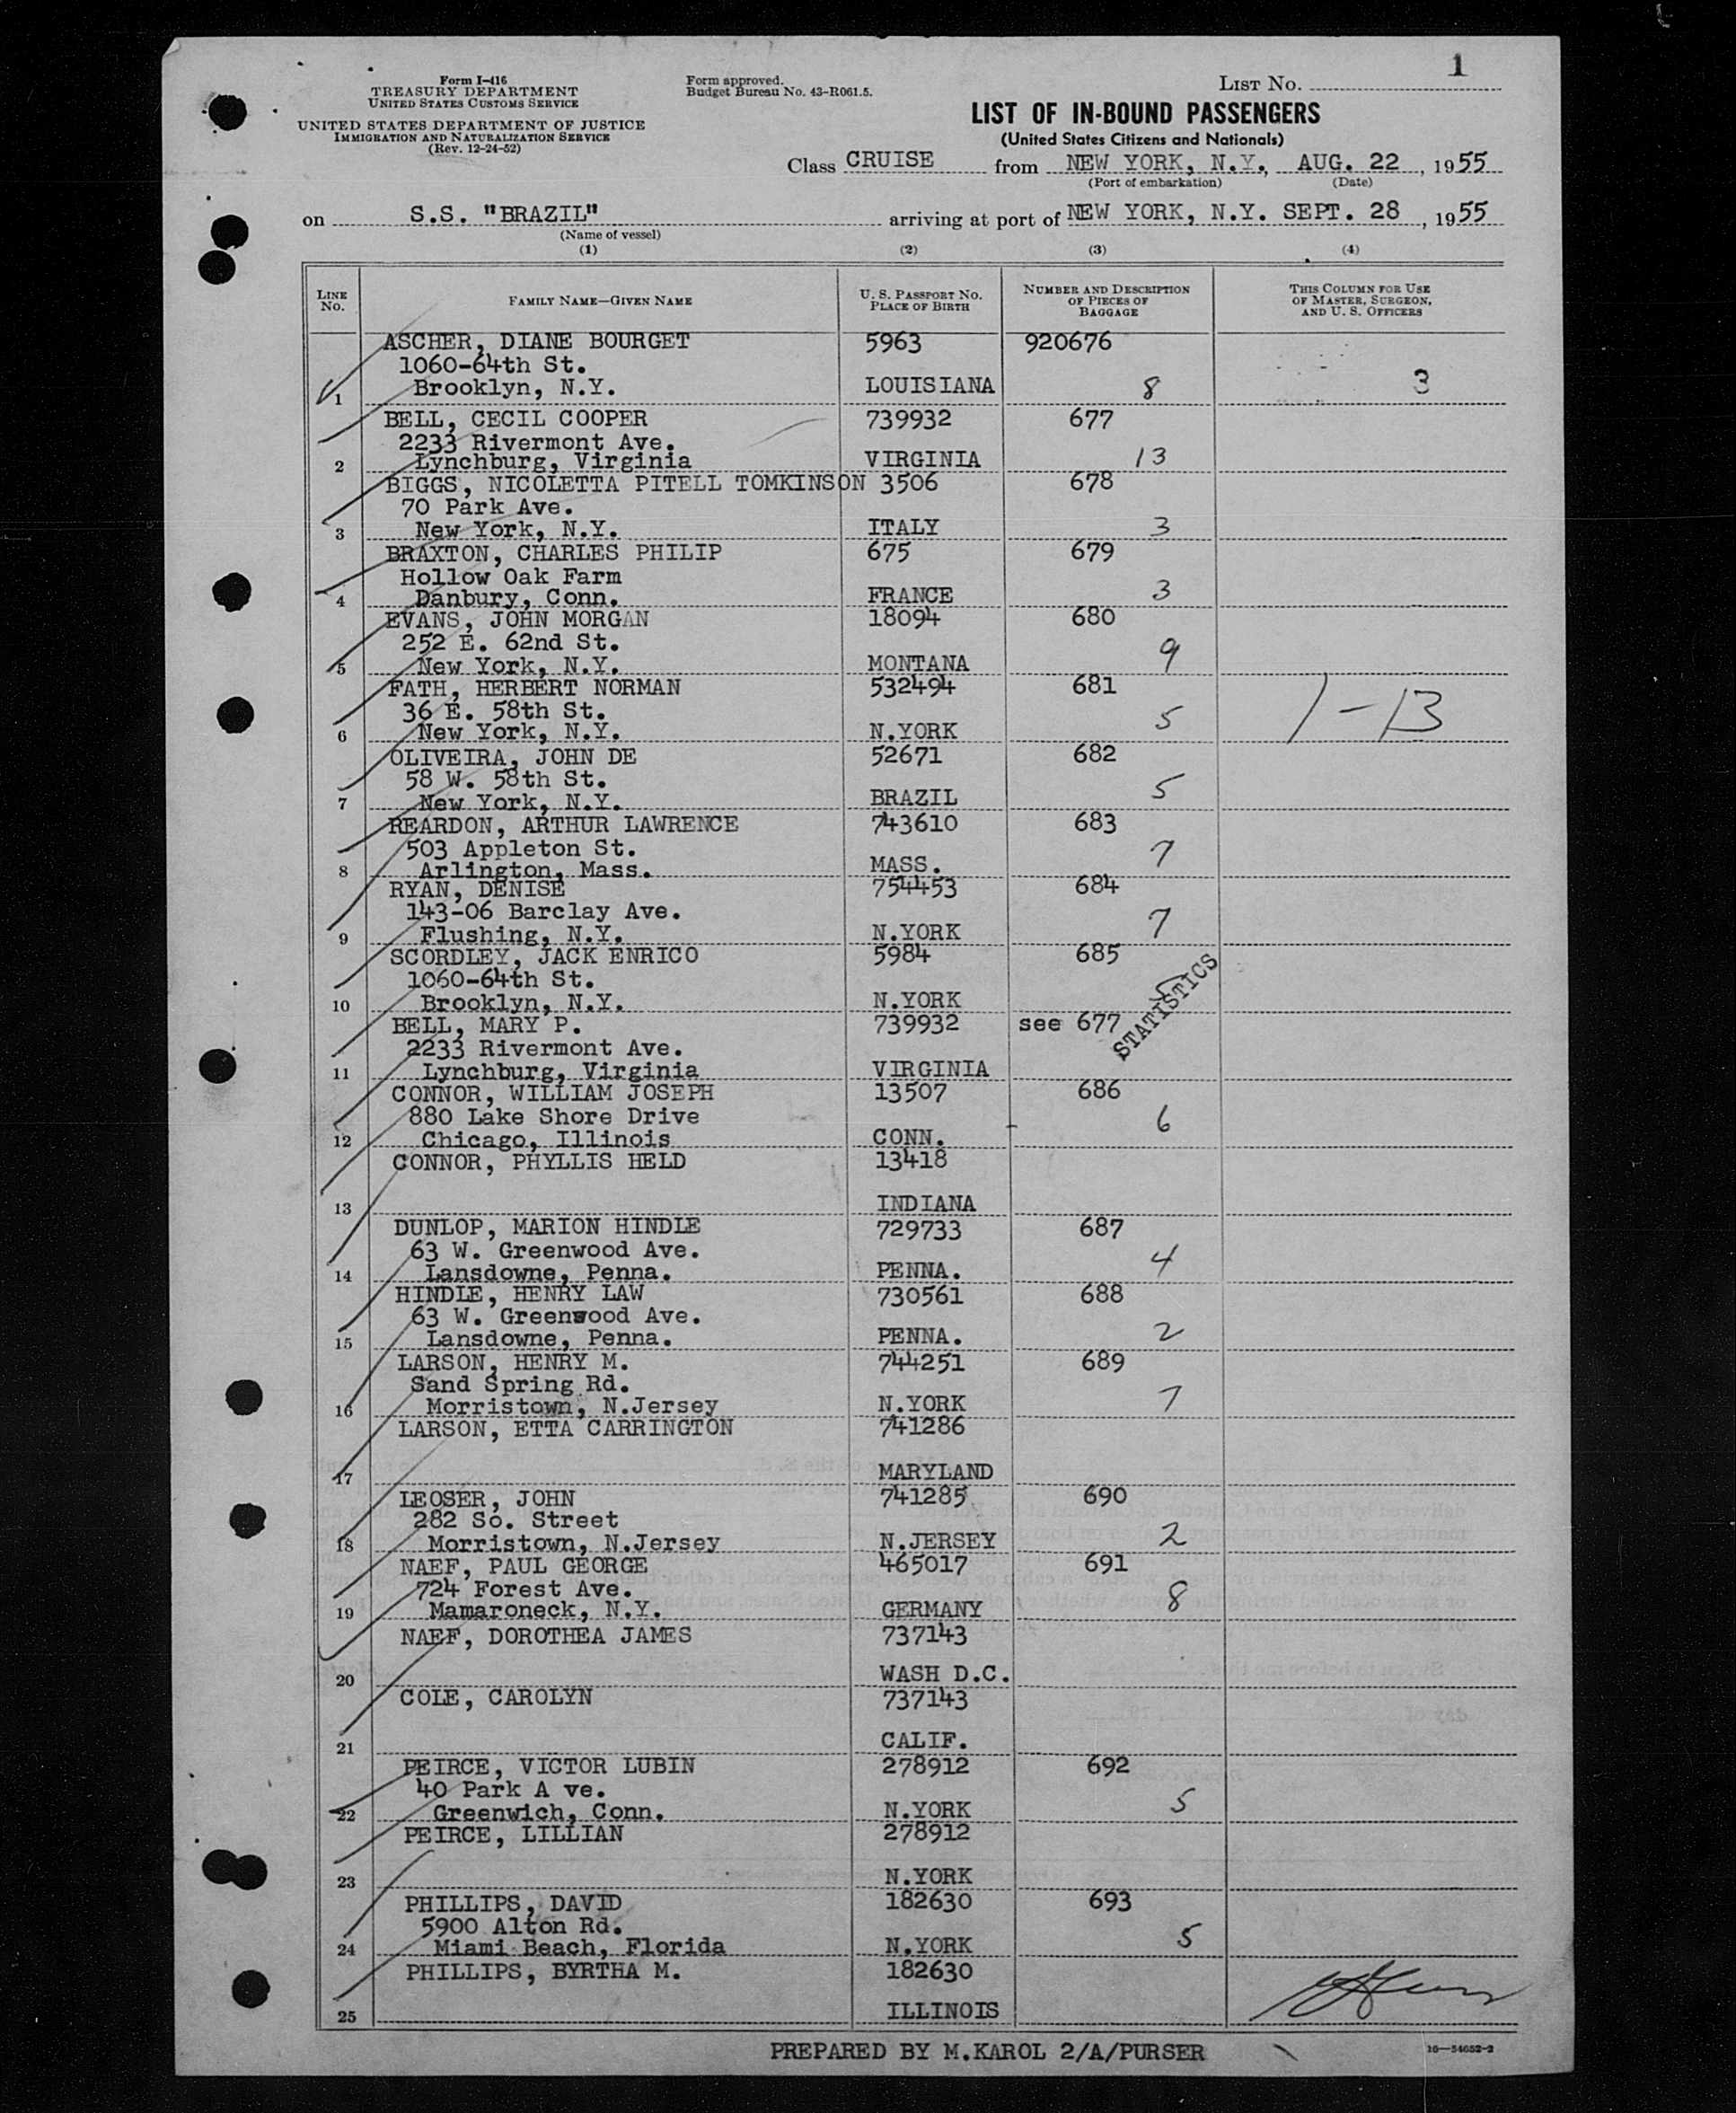 1
Form I-416
TREASURY DEPARTMENT
UNITED STATES CUSTOMS SERVICE
UNITED STATES DEPARTMENT OF JUSTICE
IMMIGRATION AND NATURALIZATION SERVICE
(Rev. 12-24-52)
Form approved.
Budget Bureau No. 43-R061.5.
LIST NO.
LIST OF IN-BOUND PASSENGERS
(United States Citizens and Nationals)
Class CRUISE from NEW YORK, N.Y., AUG. 22, 1955
(Port of embarkation) (Date)
on S.S. "BRAZIL" arriving at port of NEW YORK, N.Y. SEPT. 28, 1955
(Name of vessel)
(1) (2) (3) (4)
LINE NO. FAMILY NAME—GIVEN NAME U. S. PASSPORT NO. PLACE OF BIRTH NUMBER AND DESCRIPTION OF PIECES OF BAGGAGE THIS COLUMN FOR USE OF MASTER, SURGEON, AND U. S. OFFICERS
ASCHER, DIANE BOURGET 5963 920676
1060-64th St.
1 Brooklyn, N.Y. LOUISIANA 8 3
BELL, CECIL COOPER 739932 677
2233 Rivermont Ave.
2 Lynchburg, Virginia VIRGINIA 13
BIGGS, NICOLETTA PITELL TOMKINSON 3506 678
70 Park Ave.
3 New York, N.Y. ITALY 3
BRAXTON, CHARLES PHILIP 675 679
Hollow Oak Farm
4 Danbury, Conn. FRANCE 3
EVANS, JOHN MORGAN 18094 680
252 E. 62nd St.
5 New York, N.Y. MONTANA 9
FATH, HERBERT NORMAN 532494 681
36 E. 58th St. 5 1-13
6 New York, N.Y. N.YORK
OLIVEIRA, JOHN DE 52671 682
58 W. 58th St. 5
7 New York, N.Y. BRAZIL
REARDON, ARTHUR LAWRENCE 743610 683
503 Appleton St. 7
8 Arlington, Mass. MASS.
RYAN, DENISE 754453 684
143-06 Barclay Ave. 7
9 Flushing, N.Y. N.YORK
SCORDLEY, JACK ENRICO 5984 685
1060-64th St. 5
10 Brooklyn, N.Y. N.YORK STATISTICS
BELL, MARY P. 739932 see 677
2233 Rivermont Ave.
11 Lynchburg, Virginia VIRGINIA
CONNOR, WILLIAM JOSEPH 13507 686
880 Lake Shore Drive 6
12 Chicago, Illinois CONN.
CONNOR, PHYLLIS HELD 13418
13 INDIANA
DUNLOP, MARION HINDLE 729733 687
63 W. Greenwood Ave. 4
14 Lansdowne, Penna. PENNA.
HINDLE, HENRY LAW 730561 688
63 W. Greenwood Ave.
15 Lansdowne, Penna. PENNA. 2
LARSON, HENRY M. 744251 689
Sand Spring Rd.
16 Morristown, N.Jersey N.YORK 7
LARSON, ETTA CARRINGTON 741286
17 MARYLAND
LEOSER, JOHN 741285 690
282 So. Street
18 Morristown, N.Jersey N.JERSEY 2
NAEF, PAUL GEORGE 465017 691
724 Forest Ave. 8
19 Mamaroneck, N.Y. GERMANY
NAEF, DOROTHEA JAMES 737143
20 WASH D.C.
COLE, CAROLYN 737143
21 CALIF.
PEIRCE, VICTOR LUBIN 278912 692
40 Park A ve. 5
22 Greenwich, Conn. N.YORK
PEIRCE, LILLIAN 278912
23 N.YORK
PHILLIPS, DAVID 182630 693
5900 Alton Rd. 5
24 Miami Beach, Florida N.YORK
PHILLIPS, BYRTHA M. 182630
25 ILLINOIS
PREPARED BY M.KAROL 2/A/PURSER 16—54652-2